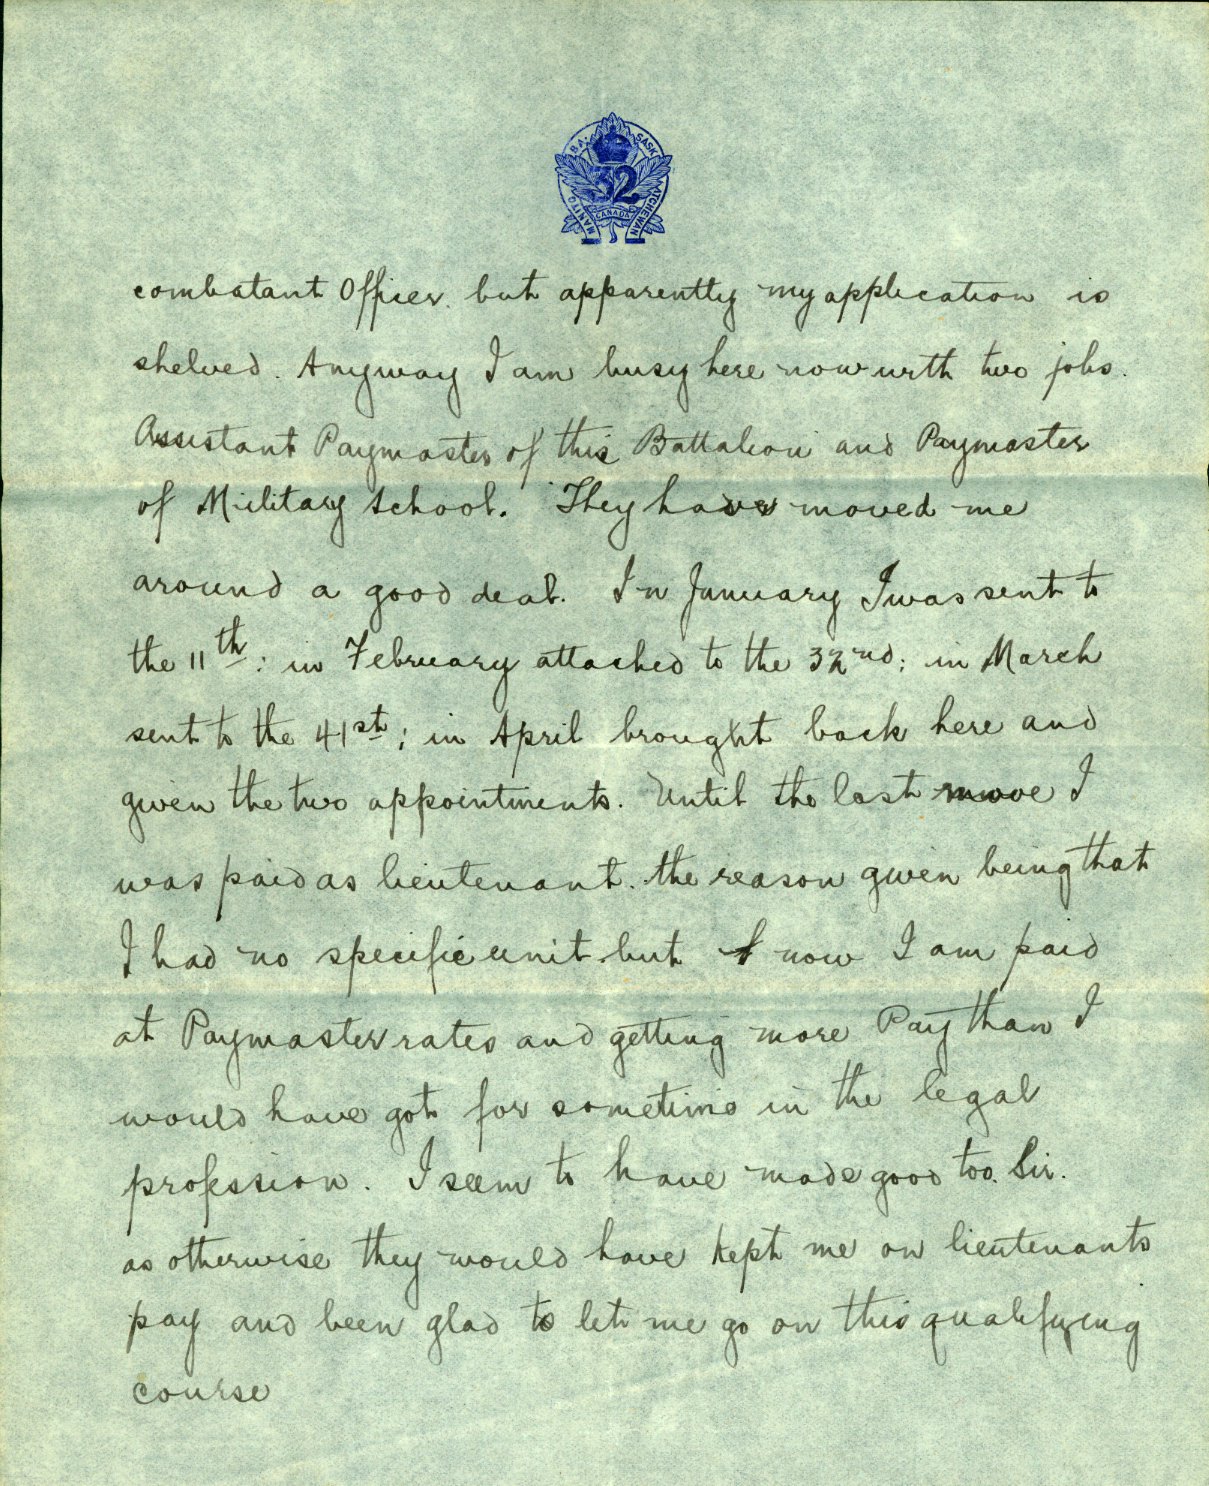 MANITOBA. SASKATCHEWAN
32
CANADA
combatant Officer. but apparently my application is
shelved. Anyway I am busy here now with two jobs.
Assistant Paymaster of this Battalion and Paymaster
of Military School. They have moved me
around a good deal. In January I was sent to
the 11th; in February attached to the 32nd; in March
sent to the 41st; in April brought back here and
given the two appointments. Until the last move I
was paid as lieutenant. the reason given being that
I had no specific unit but now I am paid
at Paymaster rates and getting more Pay than I
would have got for sometime in the legal
profession. I seem to have made good too. Sir.
as otherwise they would have kept me on lieutenants
pay and been glad to let me go on this qualifying
course